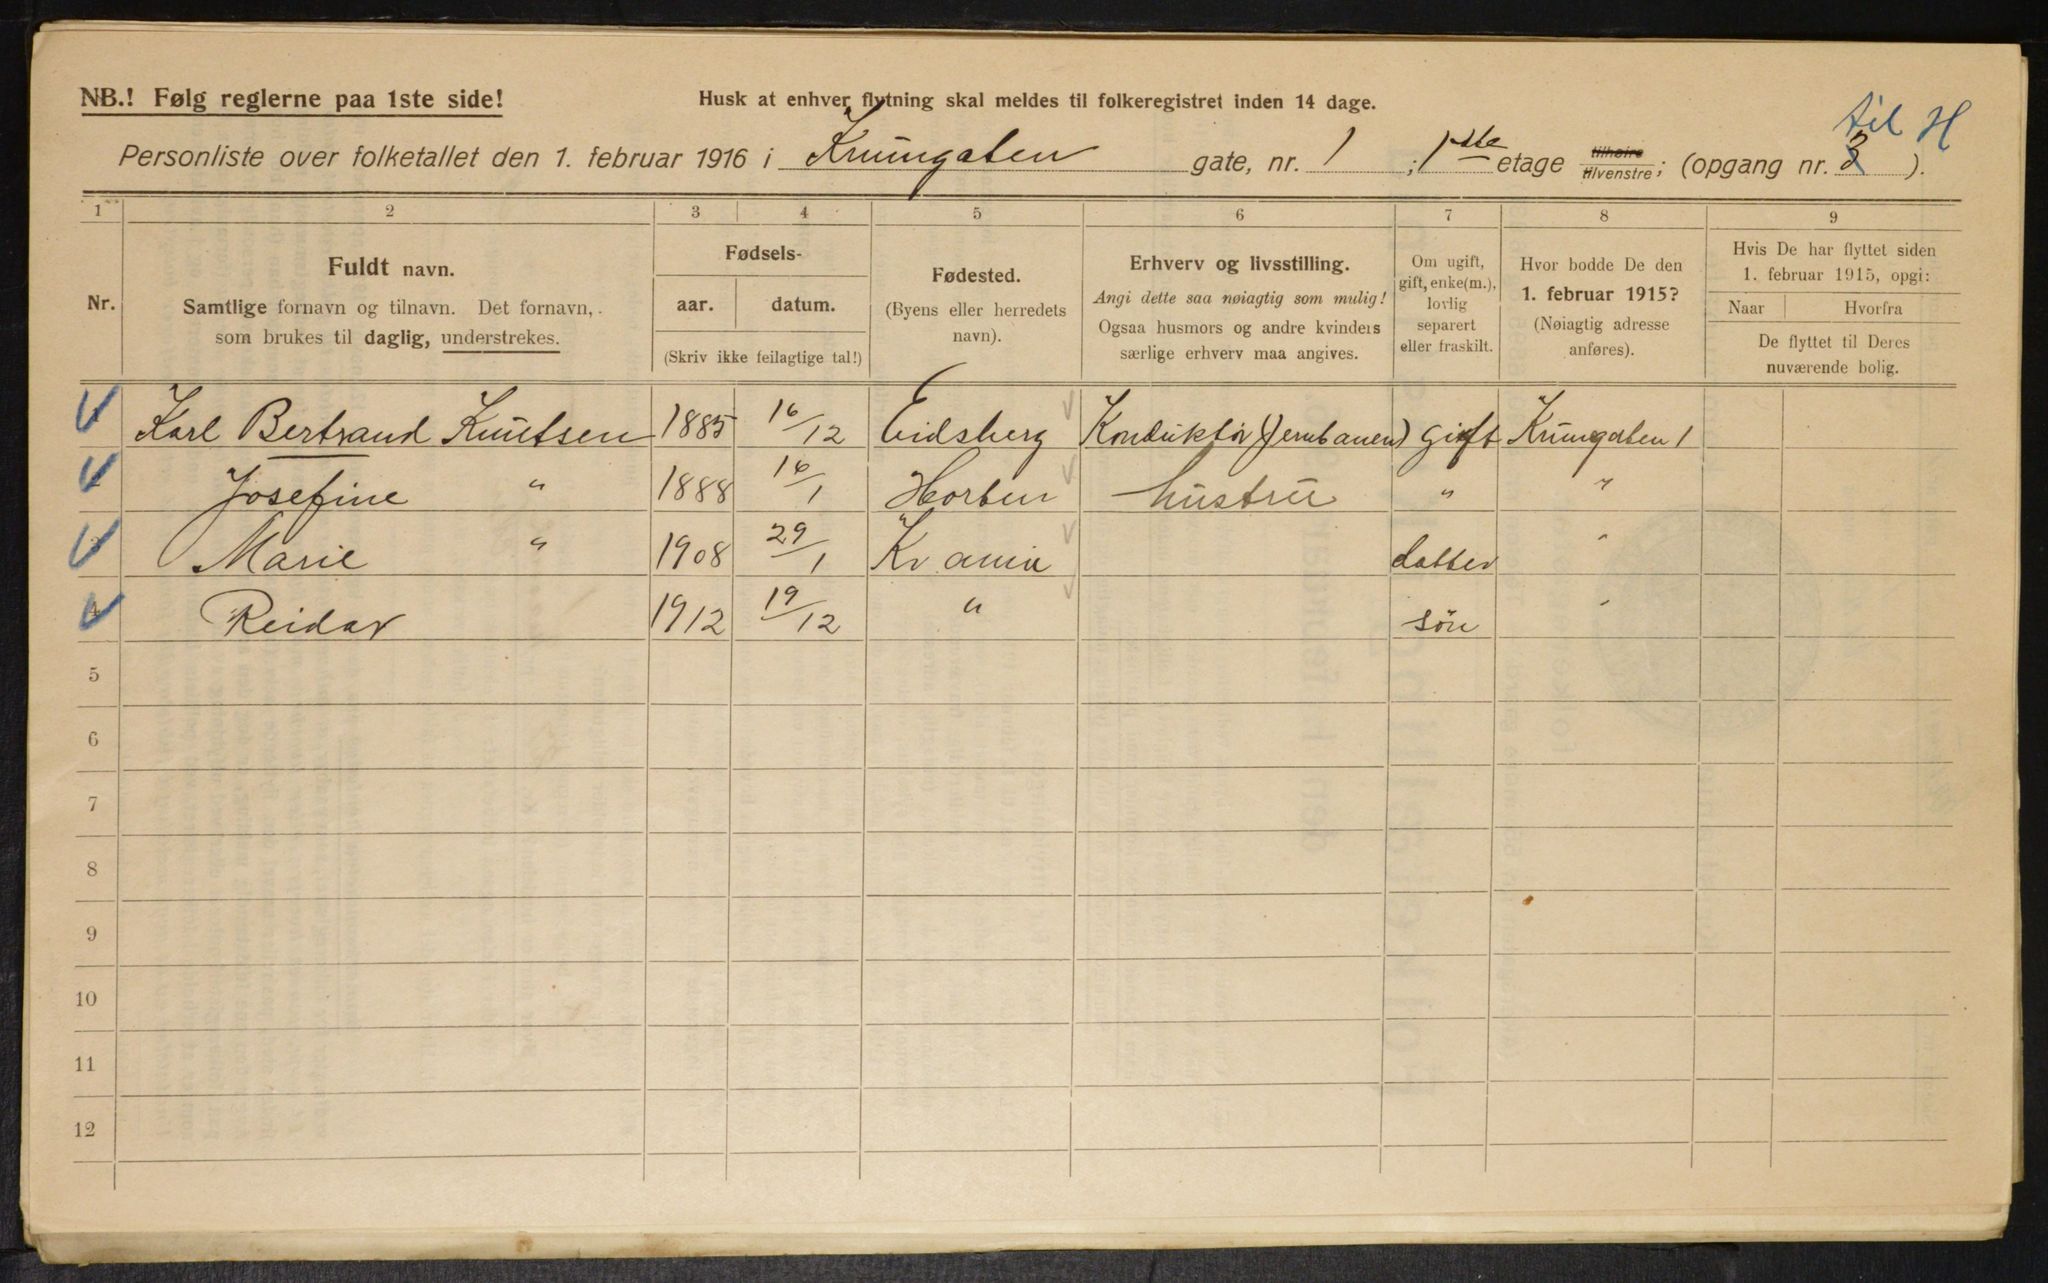 NB.! Følg reglerne paa 1ste side! Husk at enhver flytning skal meldes til folkeregistret inden 14 dage.
til H
Personliste over folketallet den 1. februar 1916 i Krumgaten gate, nr. 1 ; 1ste etage tilhøire tilvenstre; (opgang nr. 3 ).
1 2 3 4 5 6 7 8 9
Nr.
Fuldt navn.
Samtlige fornavn og tilnavn. Det fornavn,
som brukes til daglig, understrekes.
Fødsels-
aar. datum.
(Skriv ikke feilagtige tal!)
Fødested.
(Byens eller herredets
navn).
Erhverv og livsstilling.
Angi dette saa nøiagtig som mulig!
Ogsaa husmors og andre kvinders
særlige erhverv maa angives.
Om ugift,
gift, enke(m.),
lovlig
separert
eller fraskilt.
Hvor bodde De den
1. februar 1915?
(Nøiagtig adresse
anføres).
Hvis De har flyttet siden
1. februar 1915, opgi:
Naar Hvorfra
De flyttet til Deres
nuværende bolig.
1 Karl Bertrand Knutsen 1885 16/12 Eidsberg Konduktør (Jernbanen) gift Krumgaten 1
2 Josefine " 1888 16/1 Horten hustru " "
3 Marie " 1908 29/1 Kr ania datter "
4 Reidar 1912 19/12 " søn "
5
6
7
8
9
10
11
12